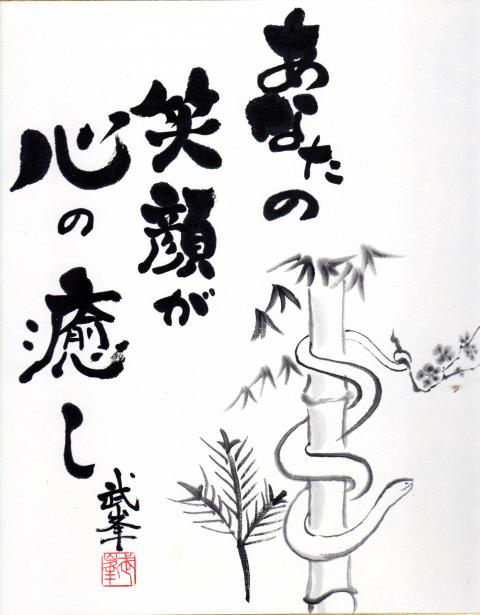 あなたの
笑顔が
心の癒し
武峯